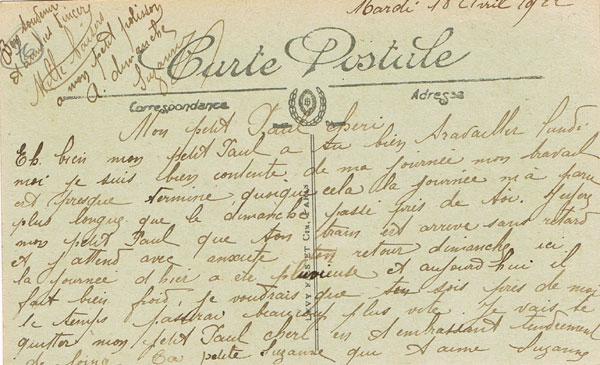 Mardi 18 Avril 1922
Bon souvenir
et
Mille baisers
a mon petit polisson
A dimanche
Suzanne
Carte Postale
Correspondance
Adresse
Mon petit Paul cheri
Eh bien mon petit Paul a tu bien travailler lundi
moi je suis bien contente de ma journée mon travail
est presque terminé, quoique cela la journée m'a paru
plus longue que le dimanche passé pres de toi. J'espere
mon petit Paul que ton train est arrivé sans retard
et j'attend avec anxiete ton retour dimanche, ici
la journée d'hier a été pluvieuse et aujourd'hui il
fait bien froid, je voudrais que tu sois pres de moi
le temps passerai beaucoup plus vite. Je vais te
quitter mon petit Paul cheri en t'embrassant tendrement
de loin. Ta petite Suzanne qui t'aime Suzanne
LEVY ET NEURDEIN